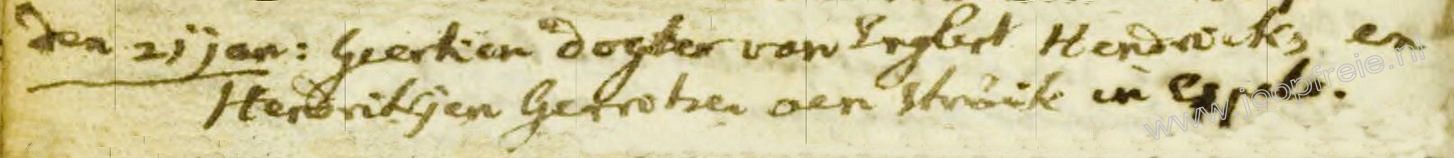 den 25 jan: Geertien dogter van Englbert Hendricks en
Hendrikjen Gerrotsen aen struik in Espel.
www.joopfreie.nl